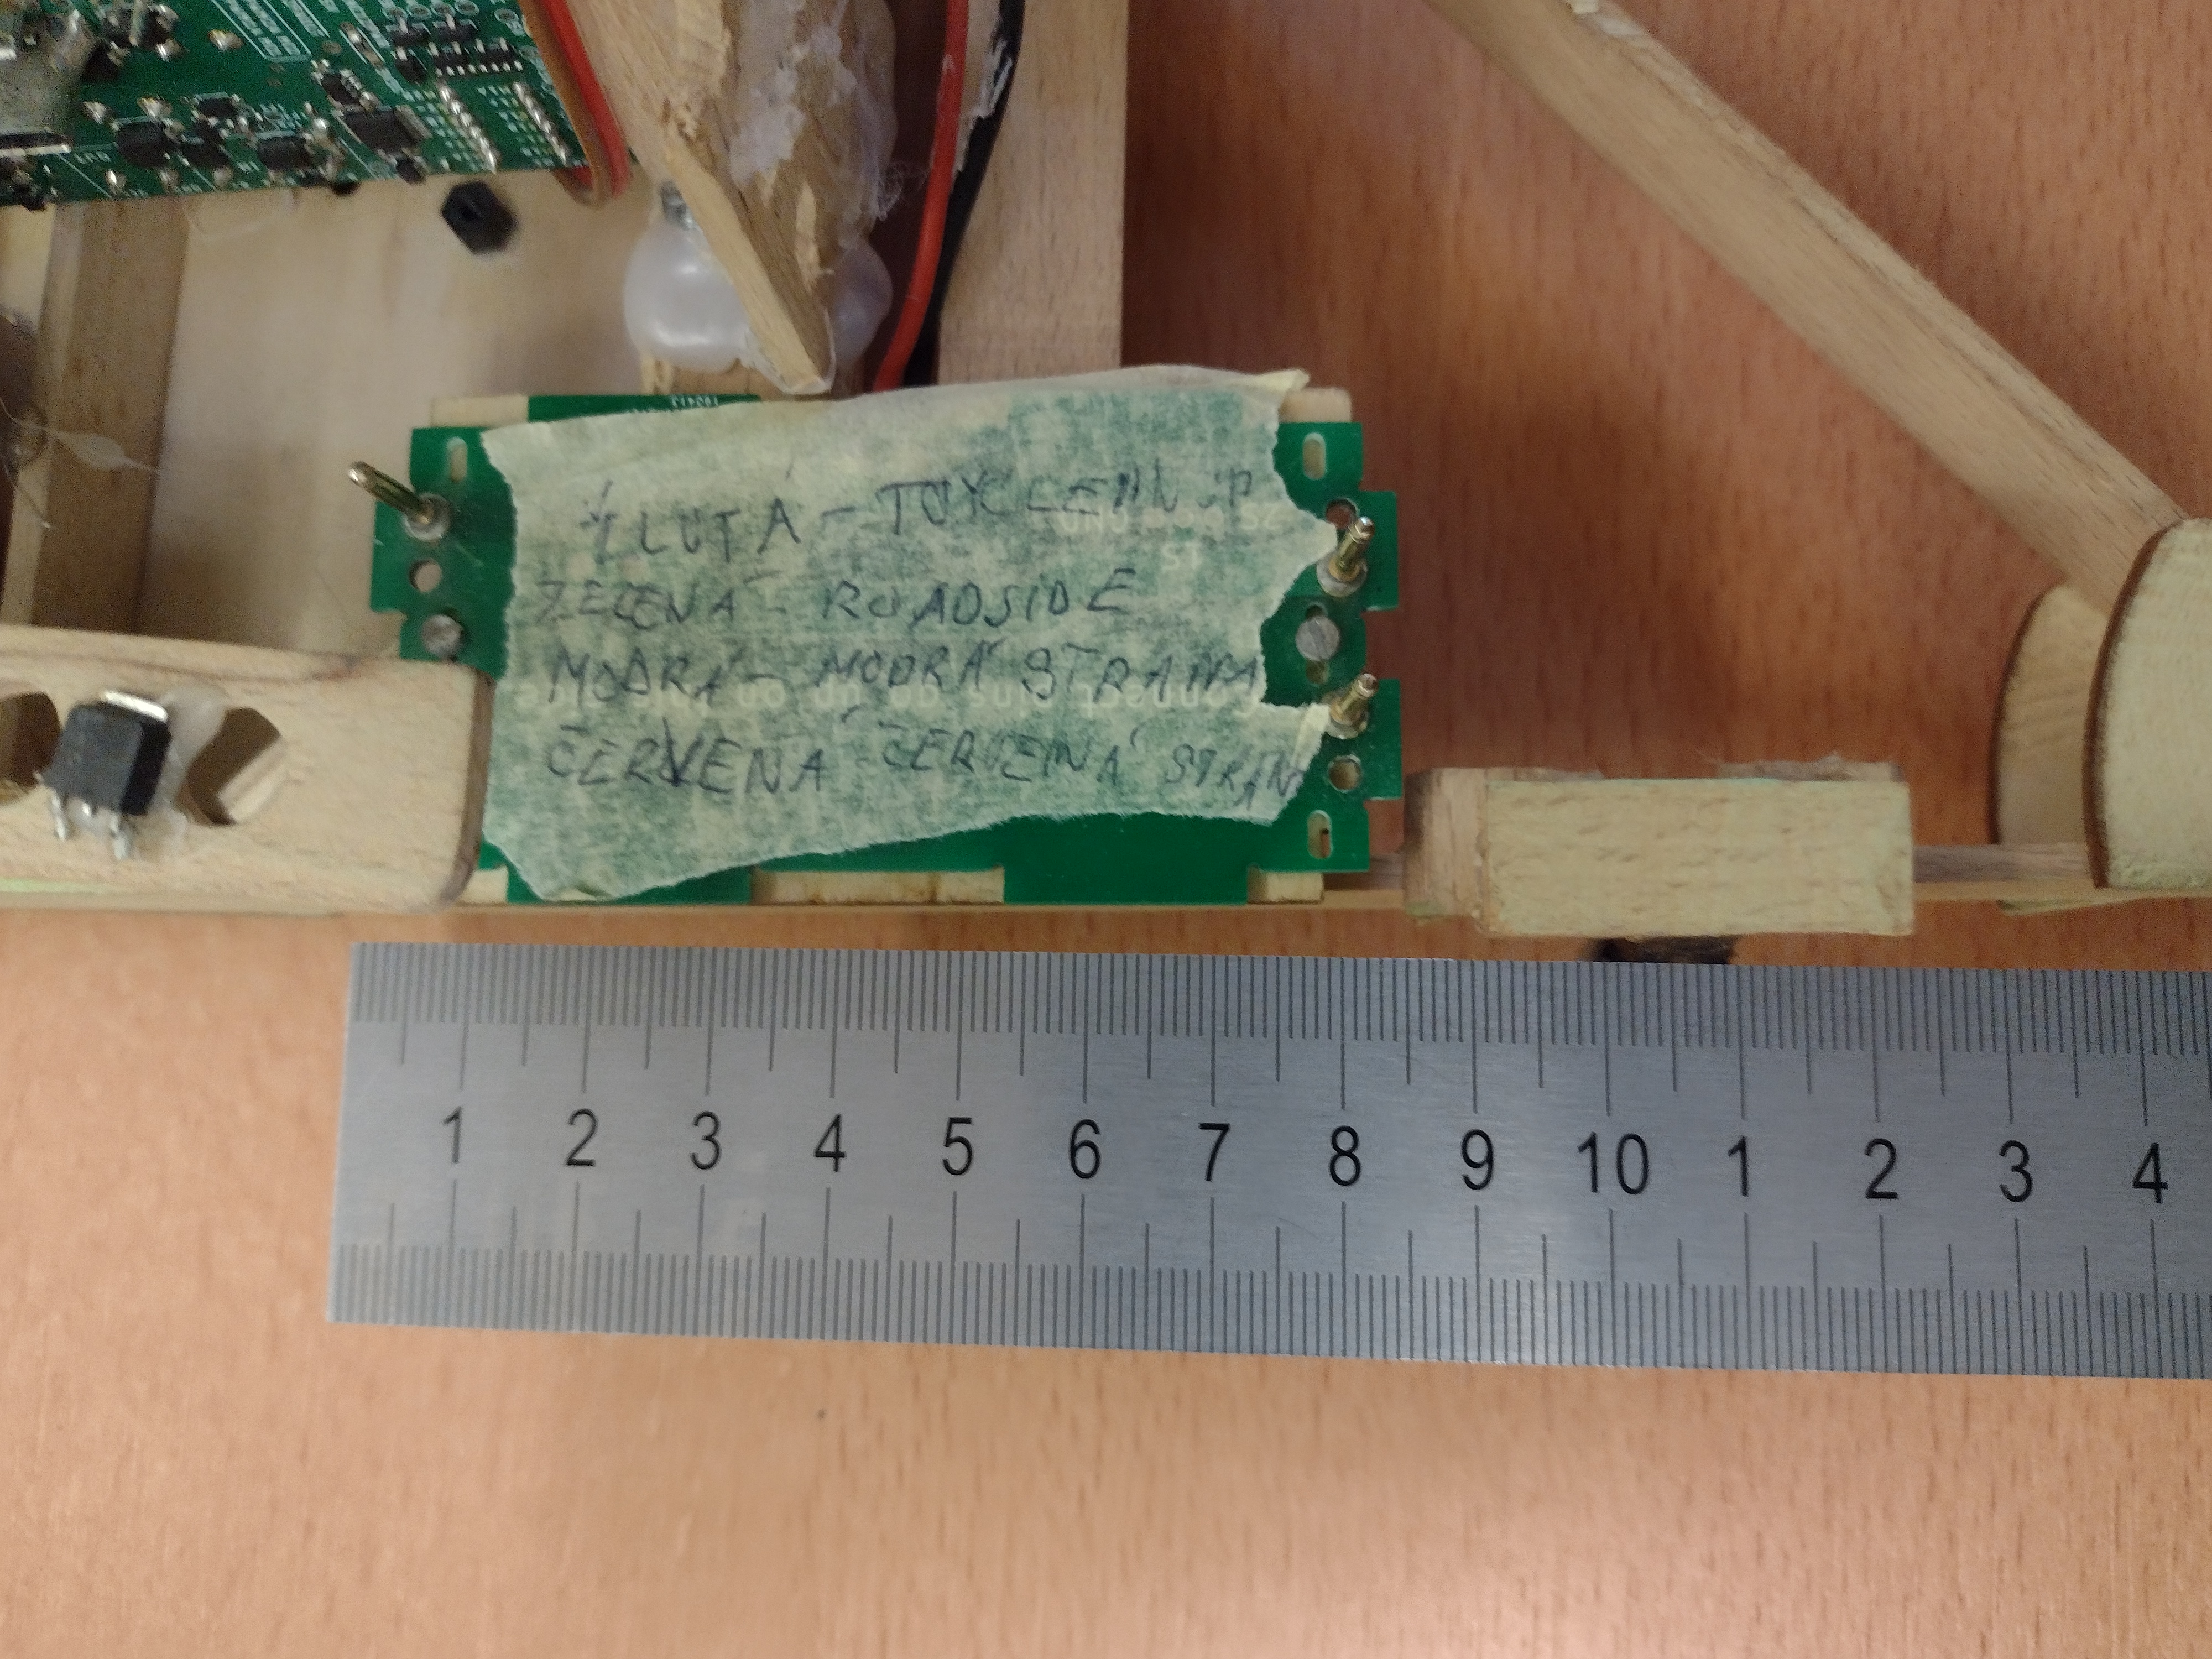 ŽLUTÁ - TOYCLEAN UP
ZELENÁ - ROADSIDE
MODRÁ - MODRÁ STRANA
ČERVENÁ - ČERVENÁ STRANA
1 2 3 4 5 6 7 8 9 10 1 2 3 4